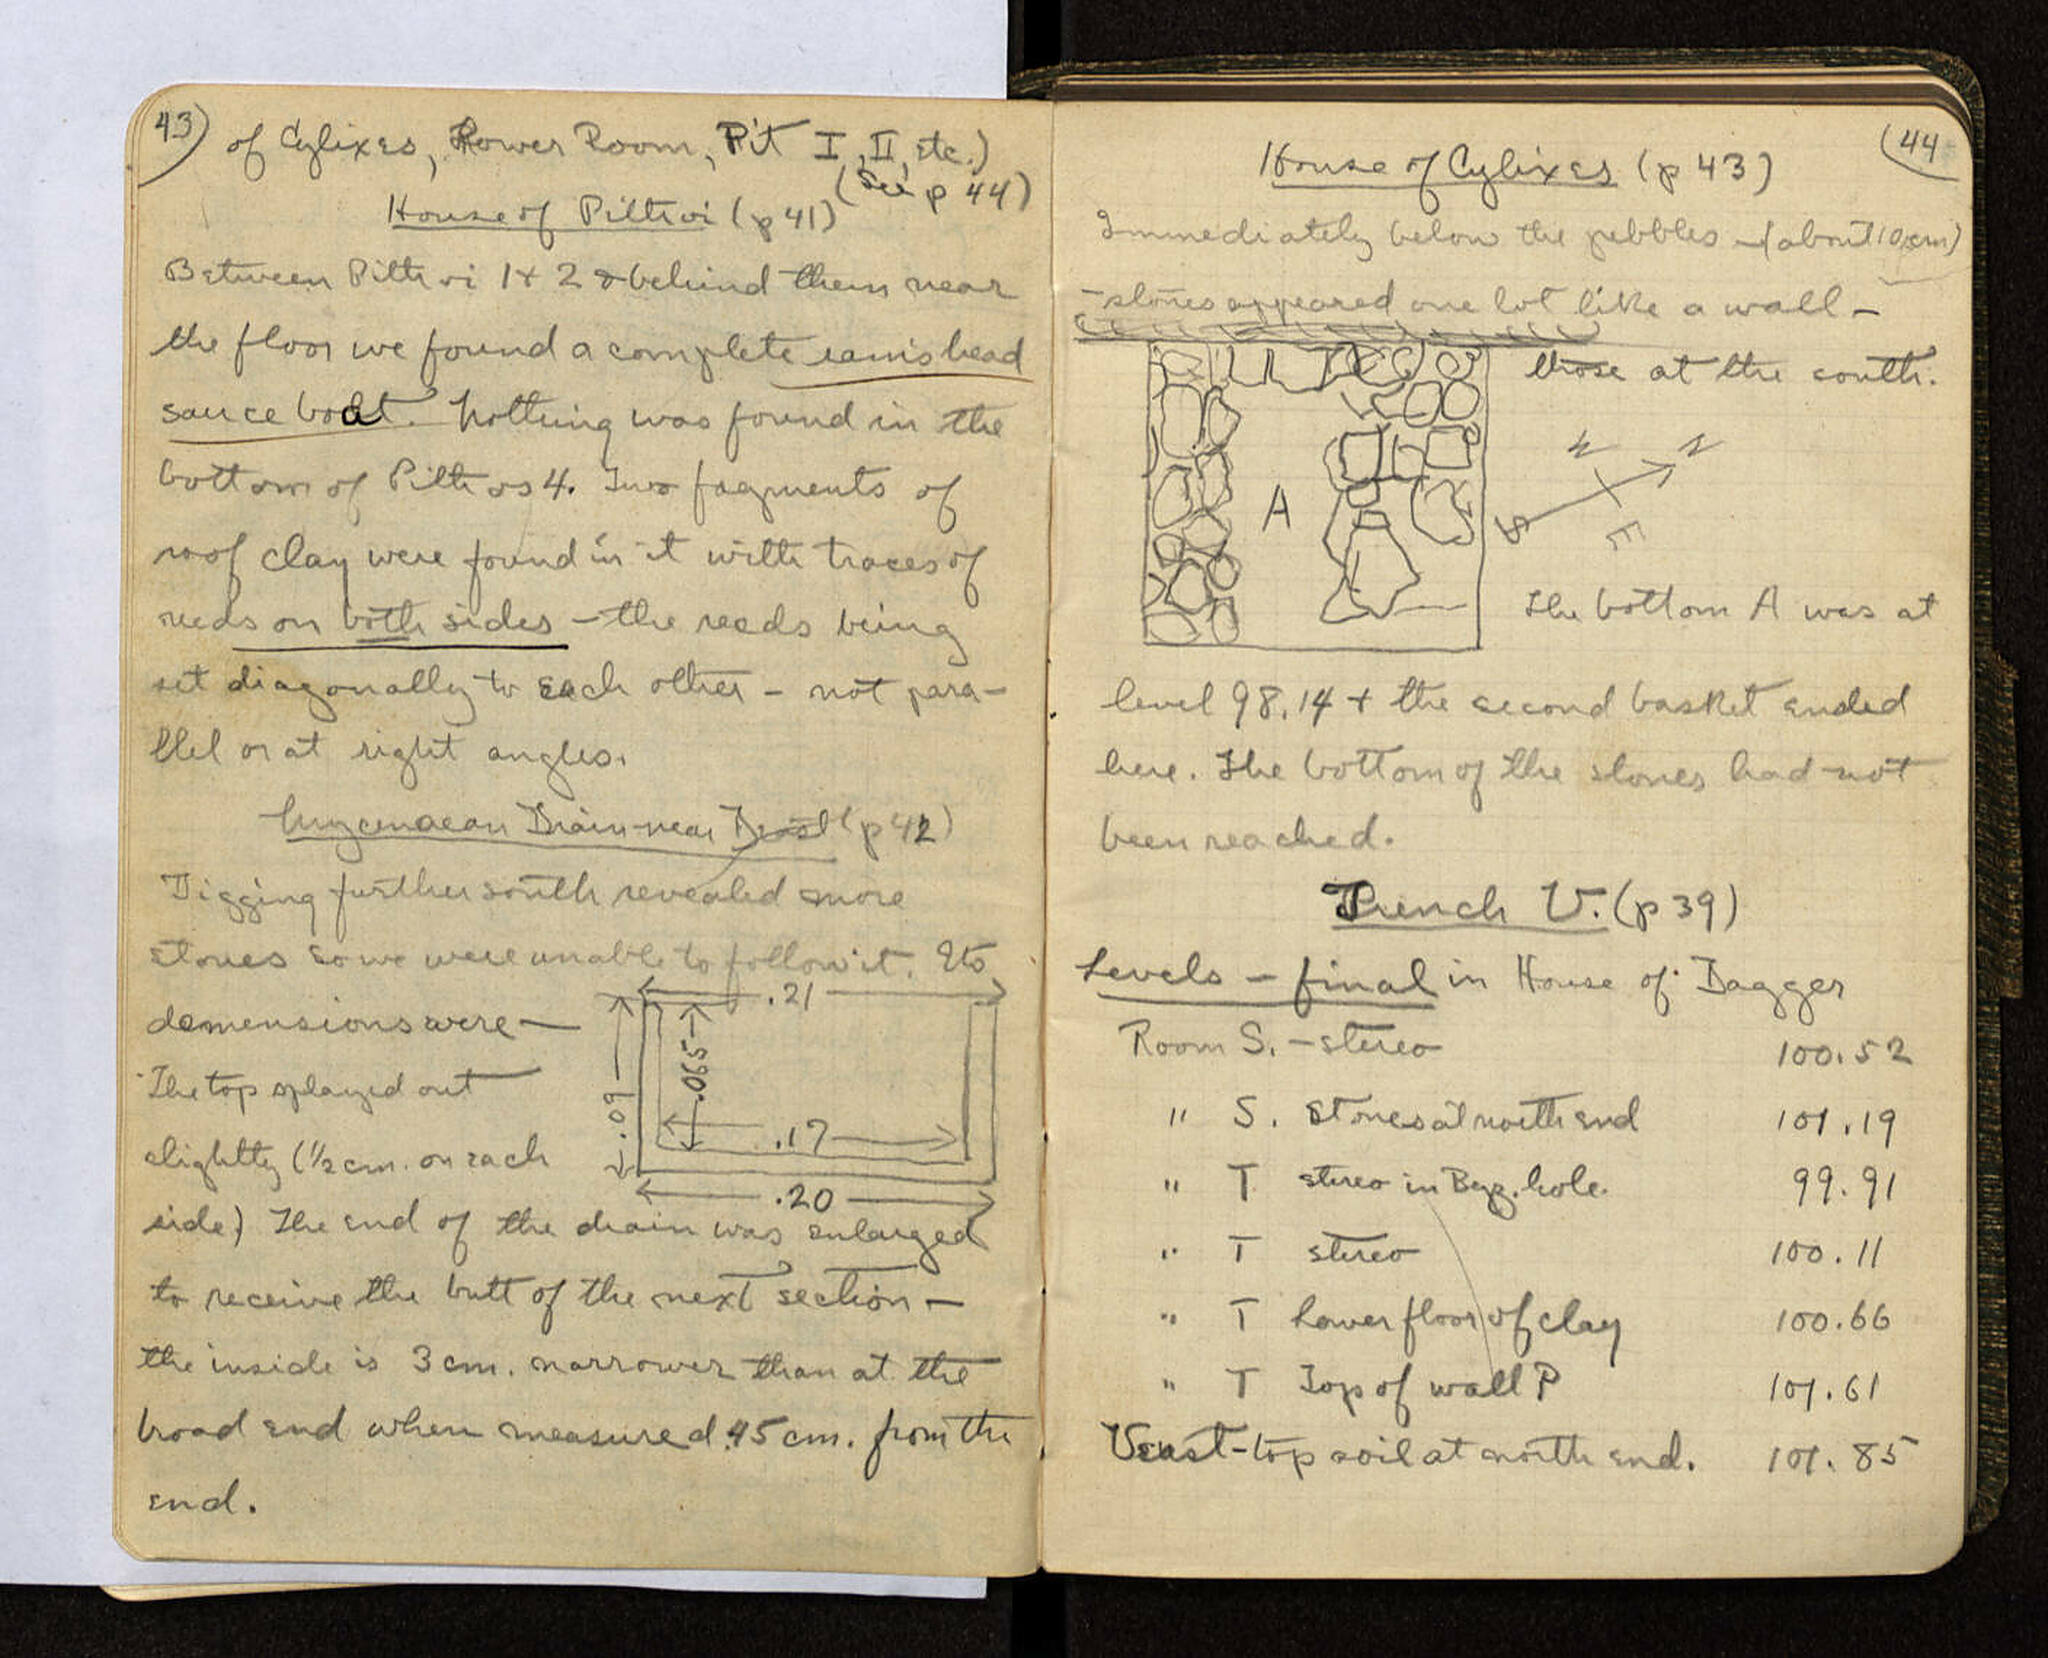 43)
of Cylixes, Power Room, Pit I, II, etc.)
(See p 44)
House of Pithoi (p 41)
Between Pithoi 1 + 2 & behind them near
the floor we found a complete ram's head
sauce boat. Nothing was found in the
bottom of Pithos 4. Two fagments of
roof clay were found in it with traces of
reeds on both sides - the reeds being
set diagonally to each other - not para-
llel or at right angles.
Mycenaean Drain near (p 42)
Digging further south revealed more
stones so we were unable to follow it. Its
demensions were -
The top splayed out
slightly (1/2 cm. on each
side) The end of the drain was enlarged
to receive the butt of the next section -
the inside is 3 cm. narrower than at the
broad end when measured .45 cm. from the
end.
.21
.09
.065
.17
.20
(44
House of Cylixes (p 43)
Immediately below the pebbles - (about 10 cm)
- stones appeared one lot like a wall -
those at the south.
A
W N
S E
The bottom A was at
level 98.14 + the second basket ended
here. The bottom of the stones had not
been reached.
Trench V. (p 39)
Levels - final in House of Dagger
Room S. - stereo 100.52
" S. Stones at north end 101.19
" T stereo in Byz. hole. 99.91
" T stereo 100.11
" T Lower floor of clay 100.66
" T Top of wall P 101.61
V east - top soil at north end. 101.85